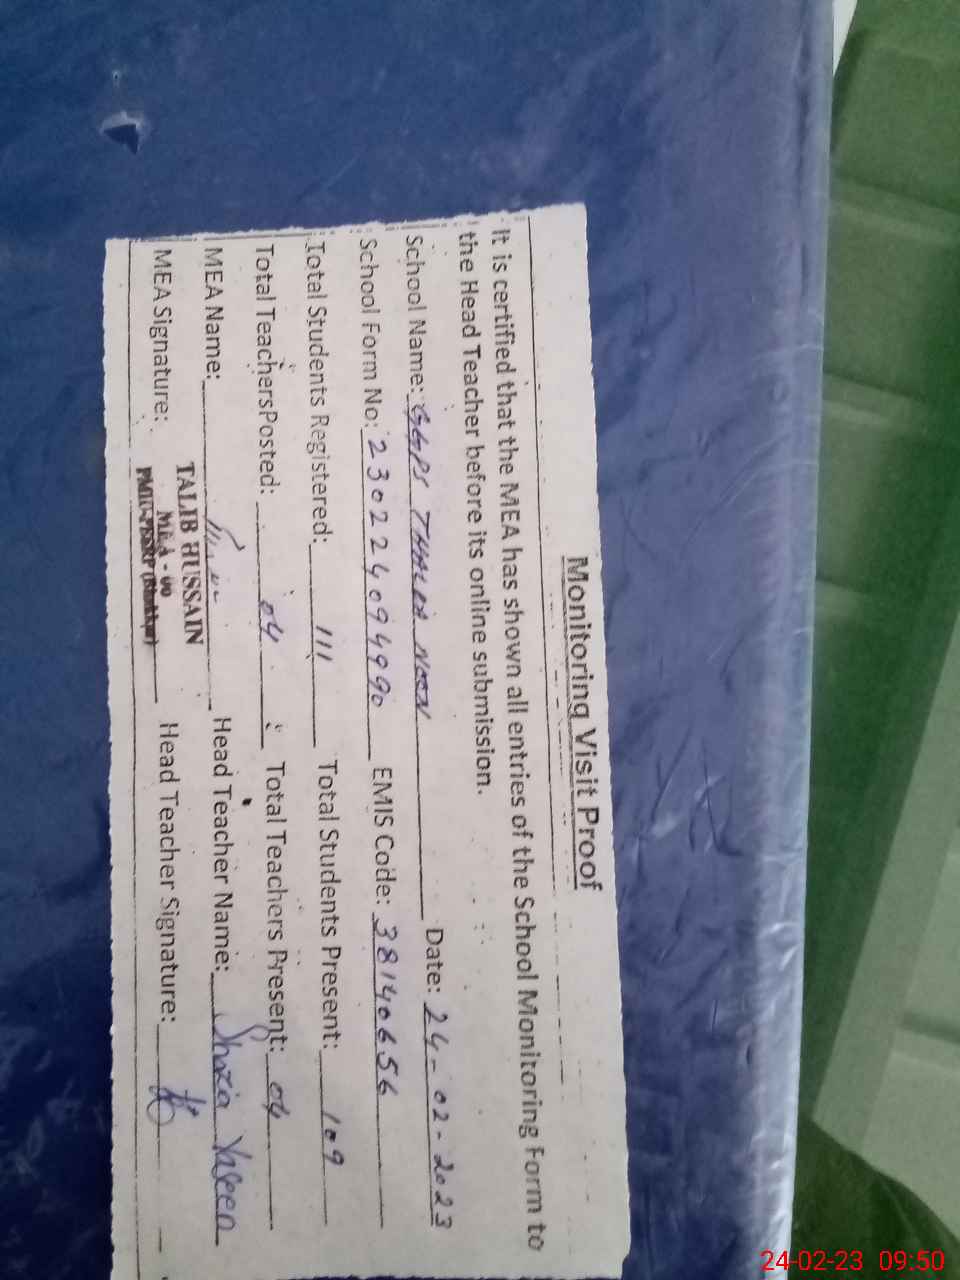 Monitoring Visit Proof
It is certified that the MEA has shown all entries of the School Monitoring Form to
the Head Teacher before its online submission.
School Name: GGPS THALLA NOON Date: 24-02-2023
School Form No: 230224094990 EMIS Code: 38140656
Total Students Registered: 111 Total Students Present: 109
Total Teachers Posted: 04 Total Teachers Present: 04
MEA Name: Head Teacher Name: Shazia Yaseen
TALIB HUSSAIN
MEA Signature: Head Teacher Signature:
MEA -
24-02-23 09:50